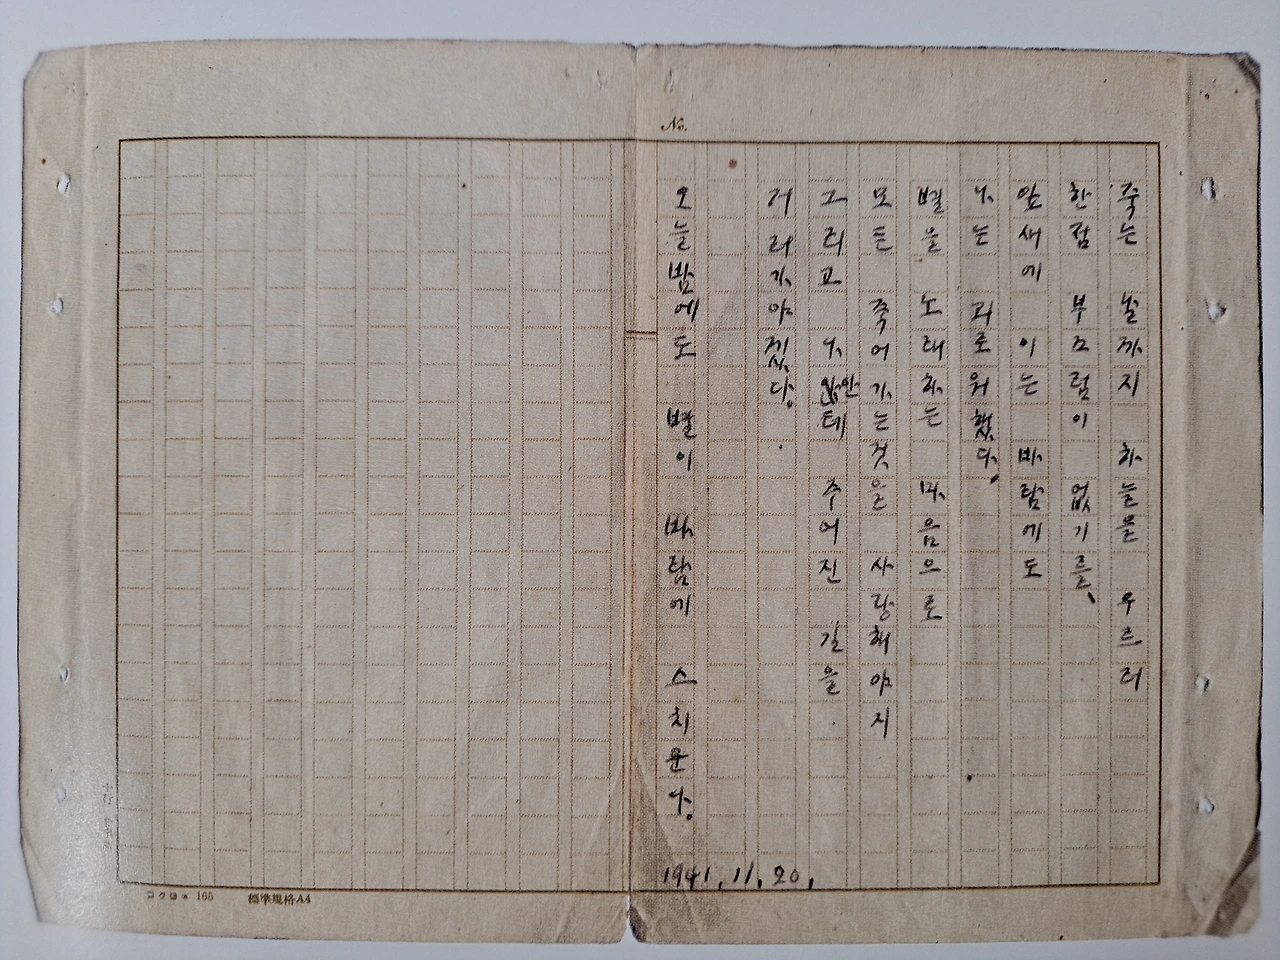 No.
죽는 날까지 하늘을 우르러
한점 부끄럼이 없기를、
잎새에 이는 바람에도
나는 괴로워했다.
별을 노래하는 마음으로
모든 죽어가는것을 사랑해야지
그리고 나안테 주어진 길을
거러가야겠다.
오늘밤에도 별이 바람에 스치운다.
1941.11.20.
165 標準規格A4